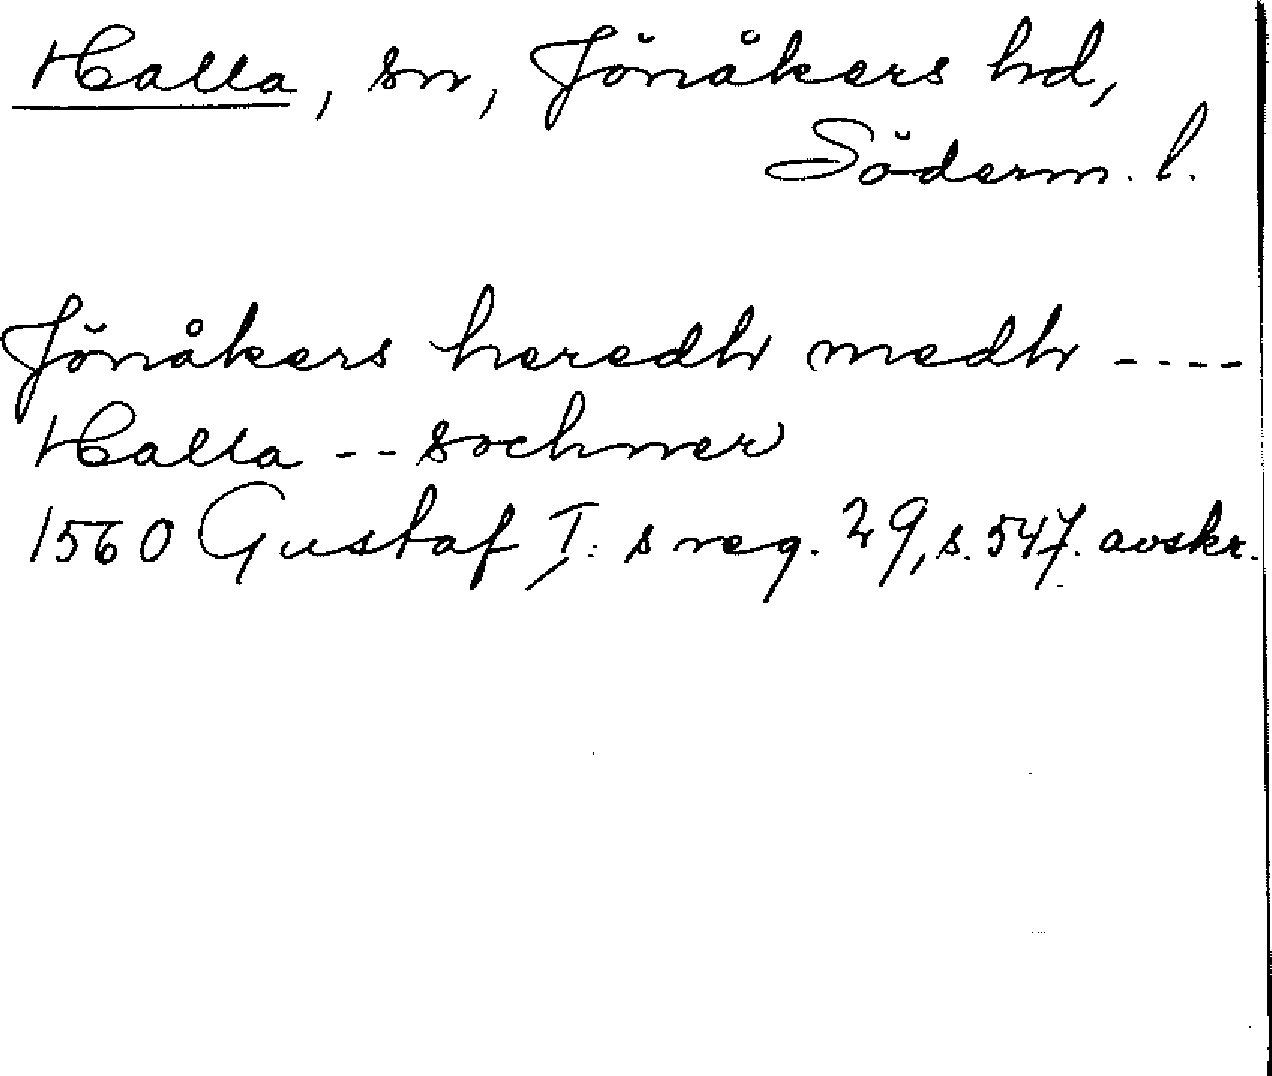 Halla, sn, Jönåkers hd,
Söderm. l.
Jönåkers heredh medh ----
Halla -- sochner
1560 Gustaf I: s reg. 29, s. 547. avskr.